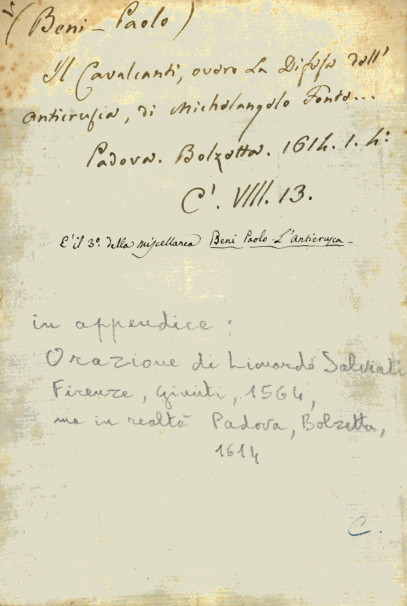 (Beni-Paolo)
Il Cavalcanti, overo La Difesa dell'
Anticrusca, di Michelangelo Fonte...
Padova. Bolzetta. 1614. 1. 4:
C'. VIII. 13.
E' il 3º. della miscellanea Beni Paolo L'Anticrusca -
in appendice:
Orazione di Lionardo Salviati
Firenze, Giunti, 1564,
ma in realtà Padova, Bolzetta,
1614
C.